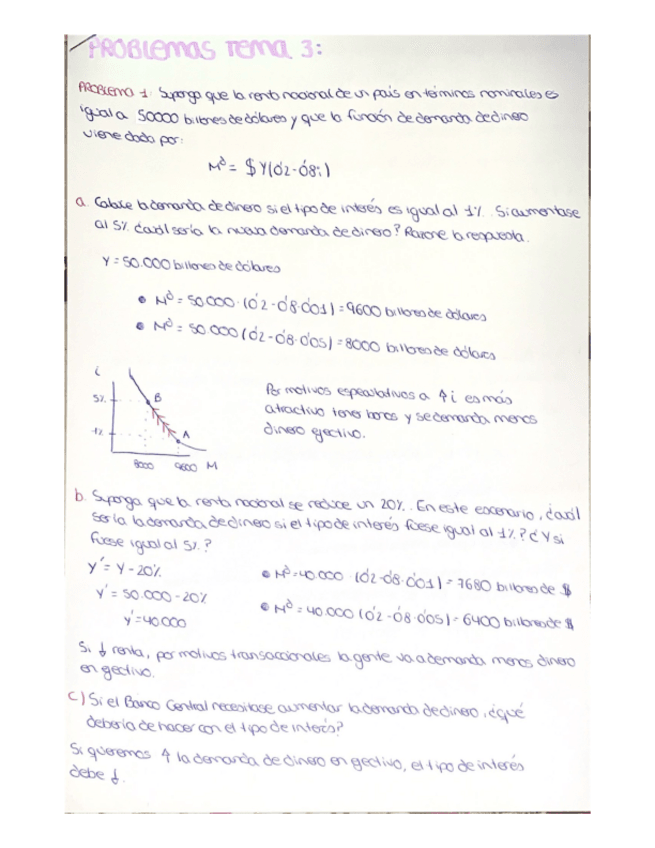 PROBLEMAS TEMA 3:
PROBLEMA 1. Suponga que la renta nacional de un país en términos nominales es
igual a 50000 billones de dólares y que la función de demanda de dinero
viene dada por:
Mᴰ = $Y(0'2 - 0'8i)
a. Calcule la demanda de dinero si el tipo de interés es igual al 1%. Si aumentase
al 5% ¿cuál sería la nueva demanda de dinero? Razone la respuesta.
Y = 50.000 billones de dólares
• Mᴰ = 50.000 · (0'2 - 0'8 · 0'01) = 9600 billones de dólares
• Mᴰ = 50.000 (0'2 - 0'8 · 0'05) = 8000 billones de dólares
i
5%
B
1%
A
8000 9600 M
Por motivos especulativos a ↑ i es más
atractivo tener bonos y se demanda menos
dinero efectivo.
b. Suponga que la renta nacional se reduce un 20%. En este escenario, ¿cuál
sería la demanda de dinero si el tipo de interés fuese igual al 1%? ¿Y si
fuese igual al 5%?
Y' = Y - 20%
Y' = 50.000 - 20%
Y' = 40.000
• Mᴰ = 40.000 · (0'2 - 0'8 · 0'01) = 7680 billones de $
• Mᴰ = 40.000 (0'2 - 0'8 · 0'05) = 6400 billones de $
Si ↓ renta, por motivos transaccionales la gente va a demanda menos dinero
en efectivo.
c) Si el Banco Central necesitase aumentar la demanda de dinero, ¿qué
debería de hacer con el tipo de interés?
Si queremos ↑ la demanda de dinero en efectivo, el tipo de interés
debe ↓.